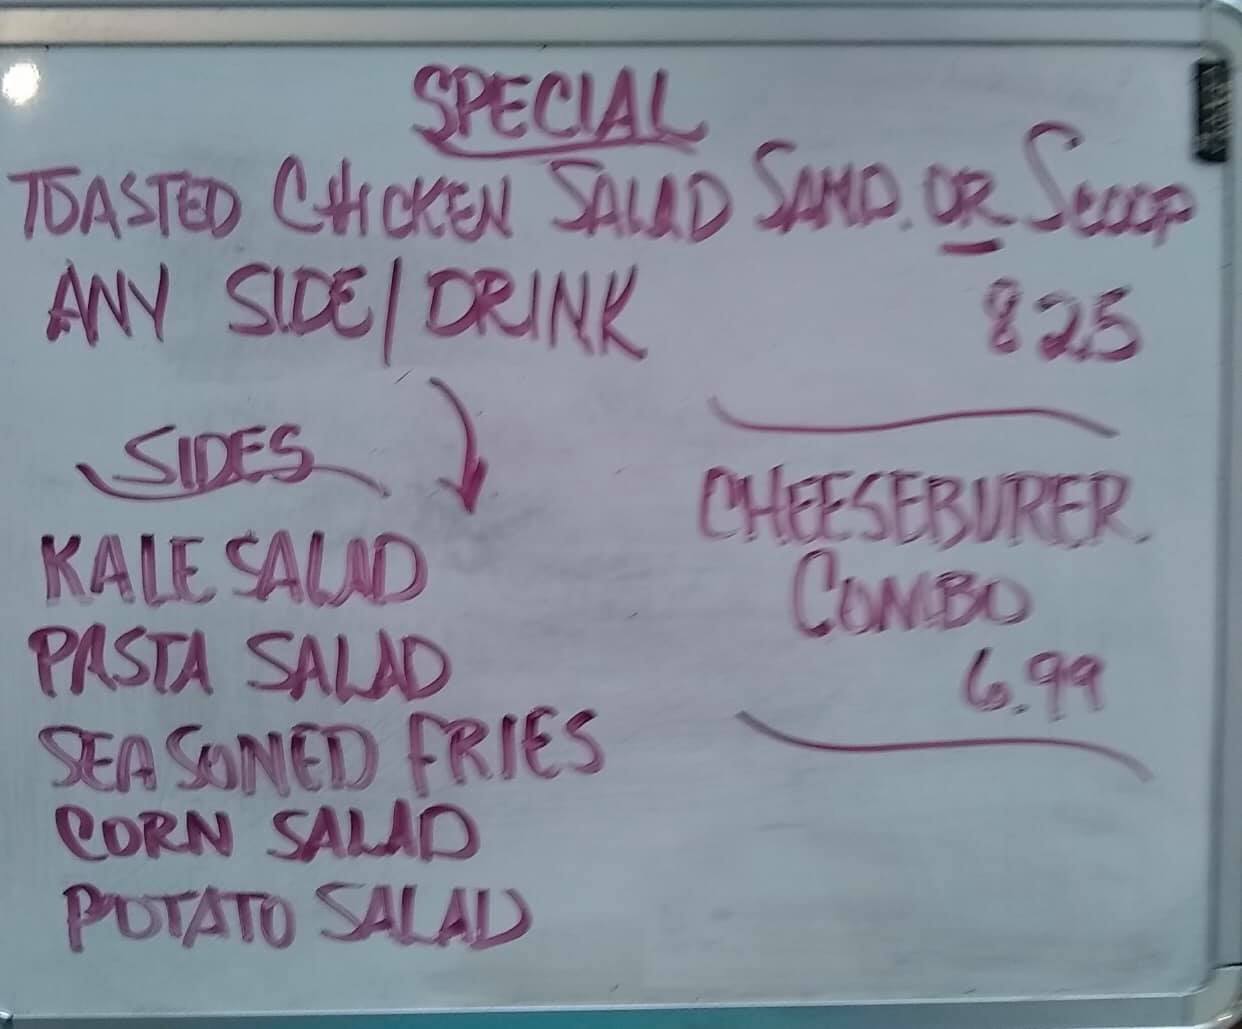 SPECIAL
TOASTED CHICKEN SALAD SAND. OR SCOOP
ANY SIDE/DRINK 8 25
SIDES
KALE SALAD
PASTA SALAD
SEASONED FRIES
CORN SALAD
POTATO SALAD
CHEESEBURER
COMBO
6.99